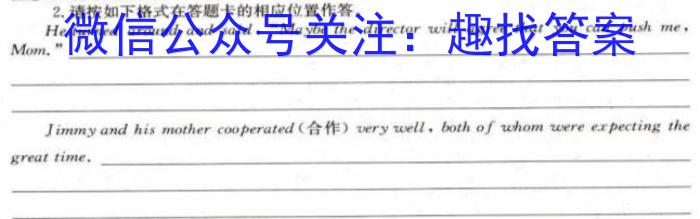 2.请按如下格式在答题卡的相应位置作答。
微信公众号关注：趣找答案
He and said Maybe the director will agree that you can push me,
Mom."
Jimmy and his mother cooperated(合作) very well, both of whom were expecting the
great time.